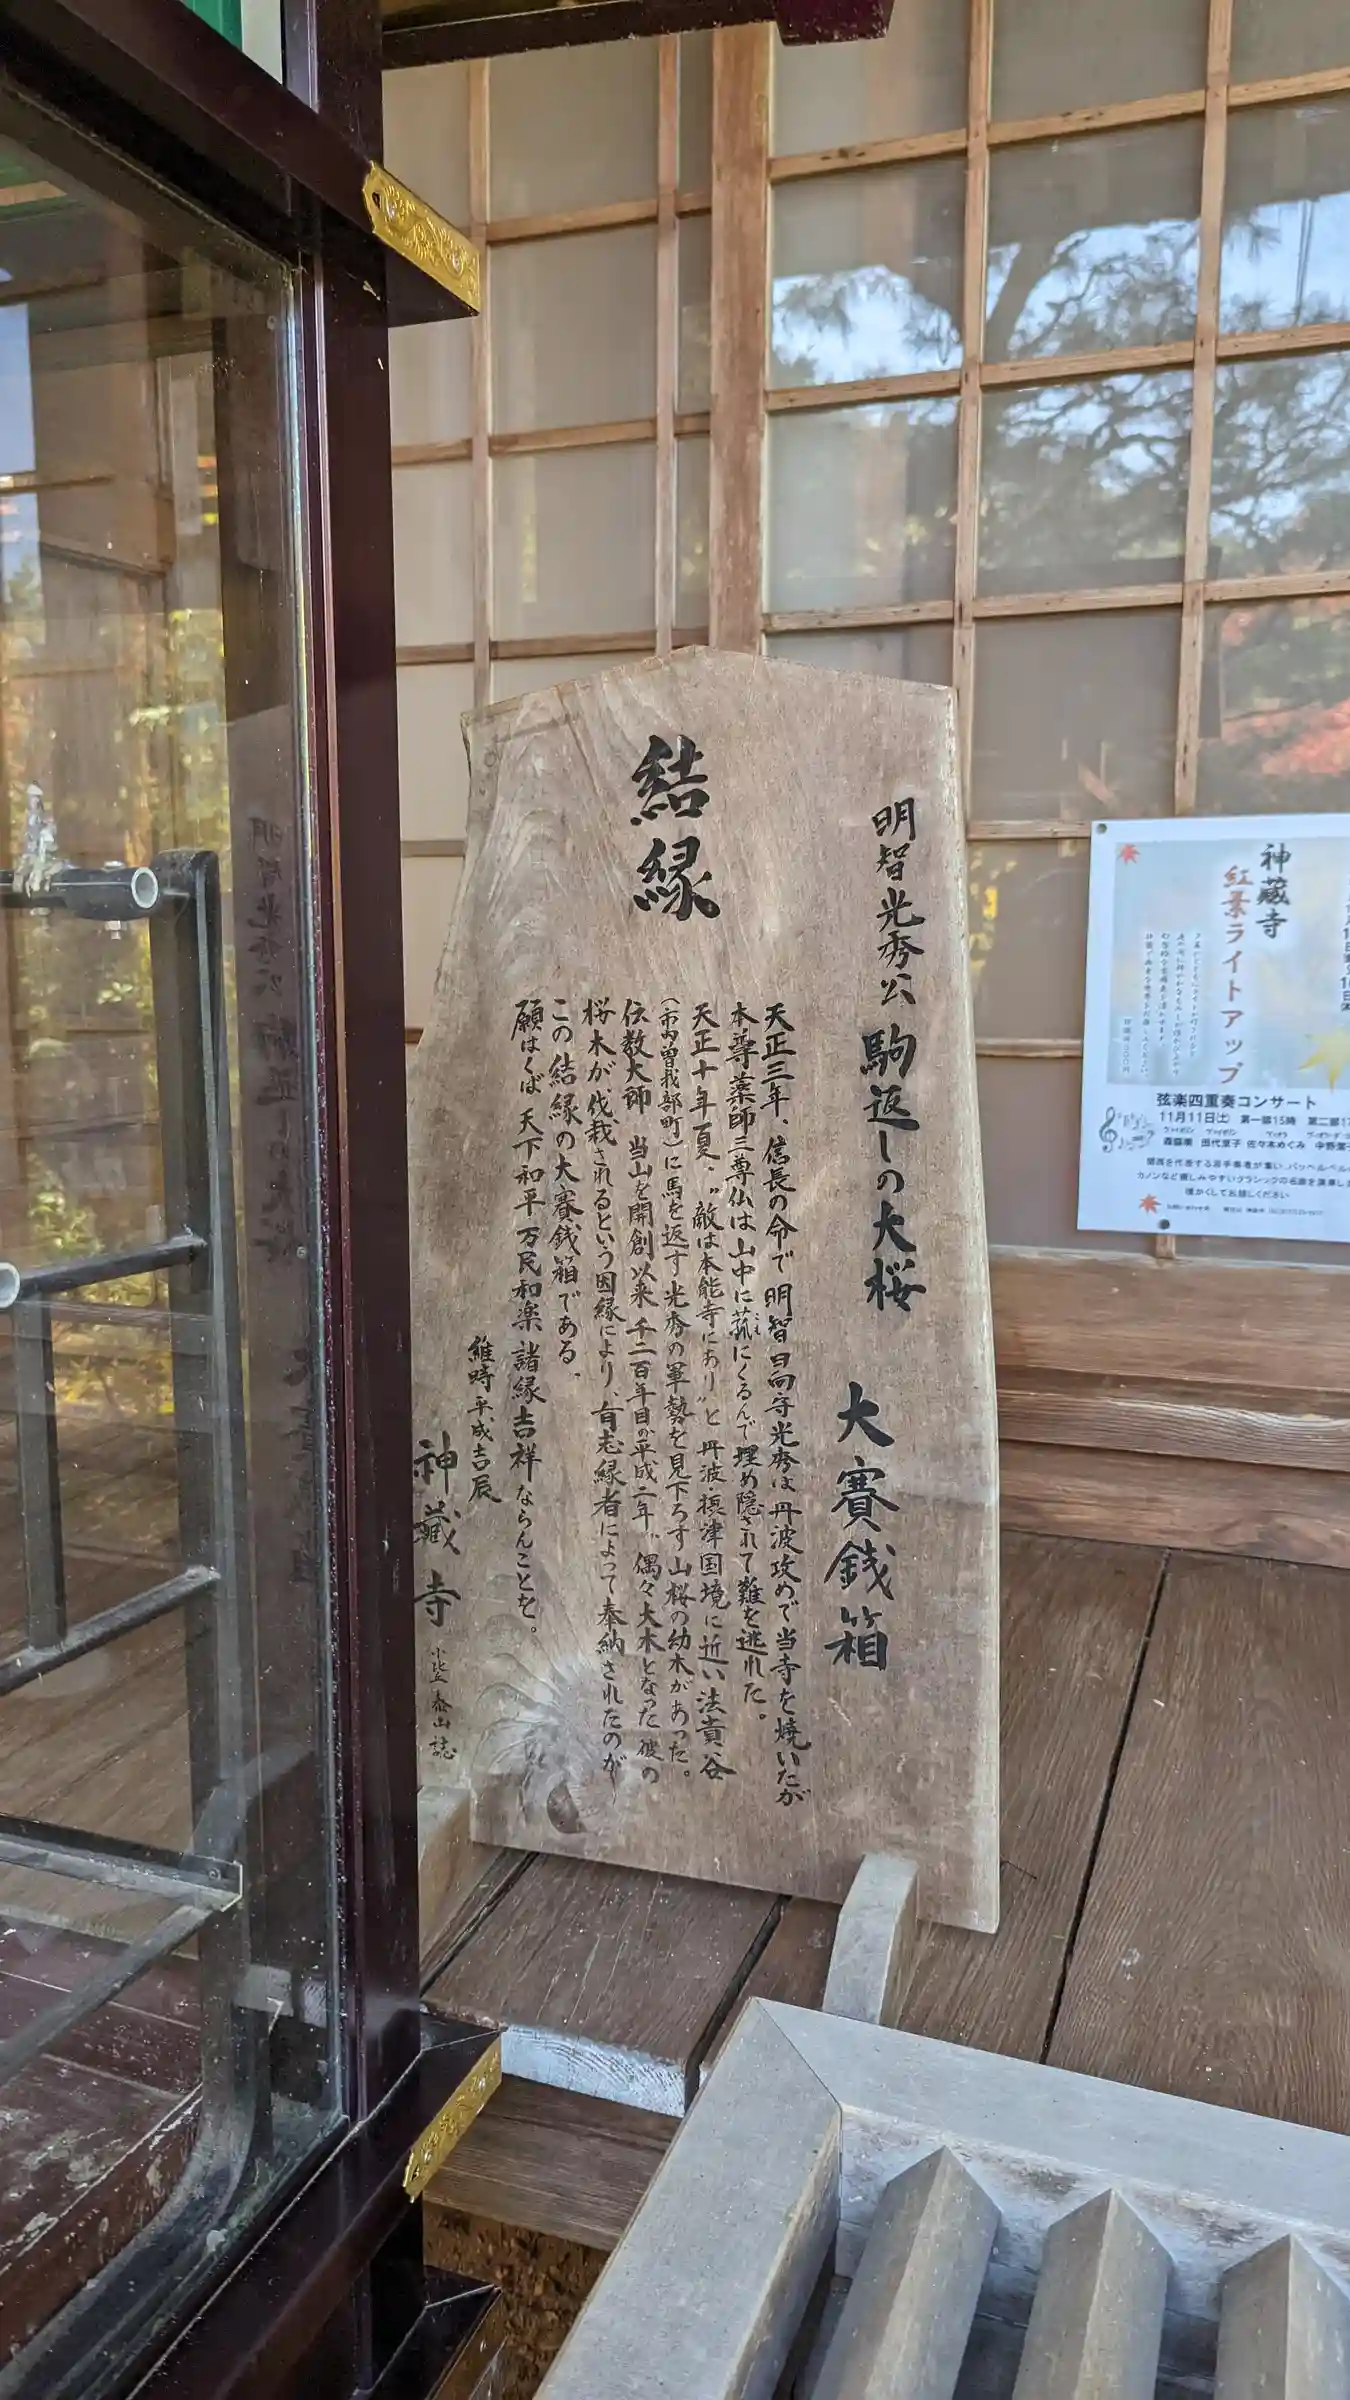 明智光秀公 駒返しの大桜 大賽銭箱
結縁
天正三年、信長の命で明智日向守光秀は丹波攻めで当寺を焼いたが
本尊薬師三尊仏は山中に菰にくるんで埋め隠されて難を逃れた。
こも
天正十年夏、〝敵は本能寺にあり〟と丹波・摂津国境に近い法貴谷
(市内曽我部町)に馬を返す光秀の軍勢を見下ろす山桜の幼木があった。
伝教大師 当山を開創以来 千二百年目の平成二年、偶々大木となった彼の
桜木が、伐栽されるという因縁により、有志縁者によって奉納されたのが
この結縁の大賽銭箱である。
願はくば 天下和平 万民和楽 諸縁吉祥ならんことを。
維時平成吉辰
神蔵寺 小埜泰山誌
神蔵寺
紅景ライトアップ
弦楽四重奏コンサート
11月11日(土) 第一部15時 第二部
関西を代表する若手奏者が集い、パッヘルベル
カノンなど親しみやすいクラシックの名曲を演奏しま
暖かくしてお越しください